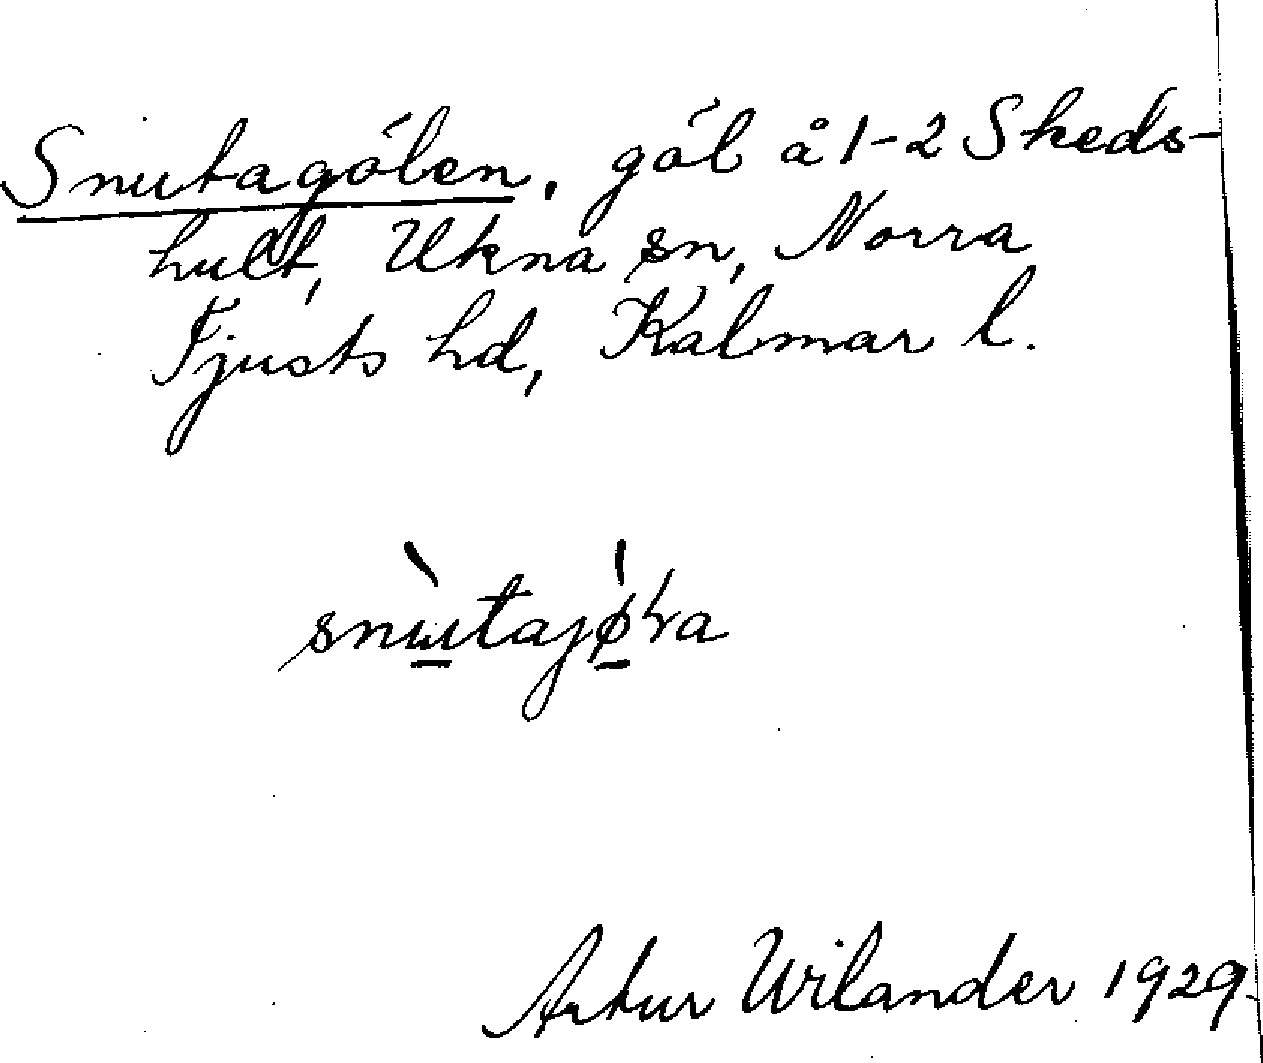 Snutagólen, gól å 1-2 Skeds-
hult, Ukna sn, Norra
Tjusts hd, Kalmar l.
Artur Wilander 1929.